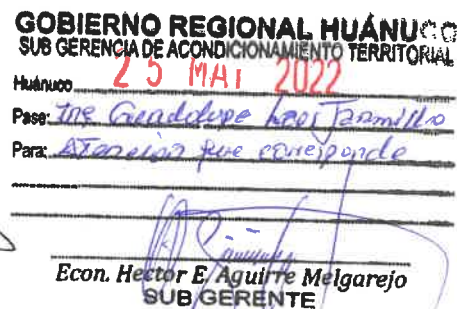 GOBIERNO REGIONAL HUÁNUCO
SUB GERENCIA DE ACONDICIONAMIENTO TERRITORIAL
Huánuco 25 MAI 2022
Pase: Ing Guadalupe Jaramillo
Para: Atención que corresponde
Econ. Hector E. Aguirre Melgarejo
SUB GERENTE